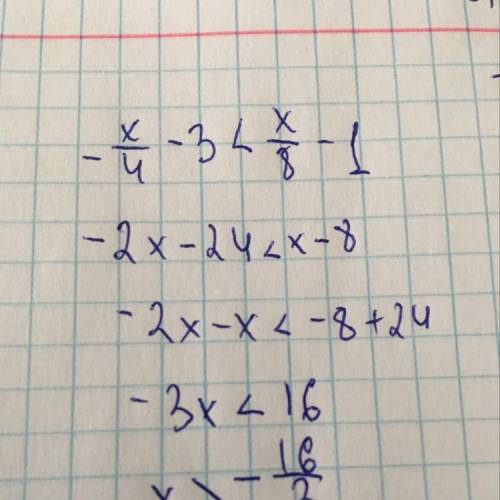 -x/4 - 3 < x/8 - 1
-2x - 24 < x - 8
-2x - x < -8 + 24
-3x < 16
x > -16/3